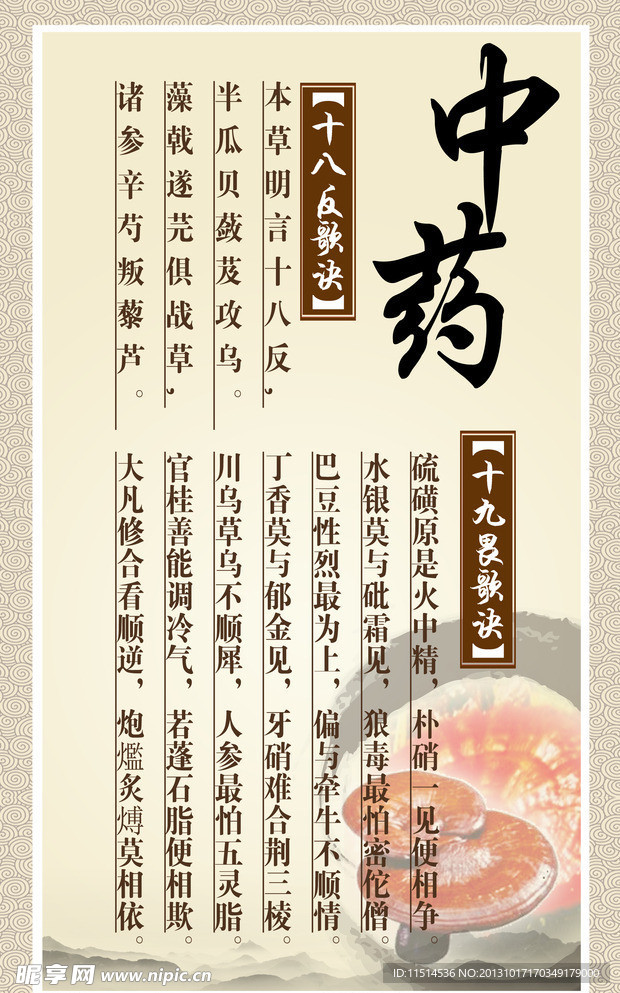 中药
【十八反歌诀】
本草明言十八反，
半瓜贝蔹芨攻乌。
藻戟遂芫俱战草，
诸参辛芍叛藜芦。
【十九畏歌诀】
硫磺原是火中精，朴硝一见便相争。
水银莫与砒霜见，狼毒最怕密佗僧。
巴豆性烈最为上，偏与牵牛不顺情。
丁香莫与郁金见，牙硝难合荆三棱。
川乌草乌不顺犀，人参最怕五灵脂。
官桂善能调冷气，若蓬石脂便相欺。
大凡修合看顺逆，炮爁炙煿莫相依。
昵享网 www.nipic.cn
ID:11514536 NO:20131017170349179000